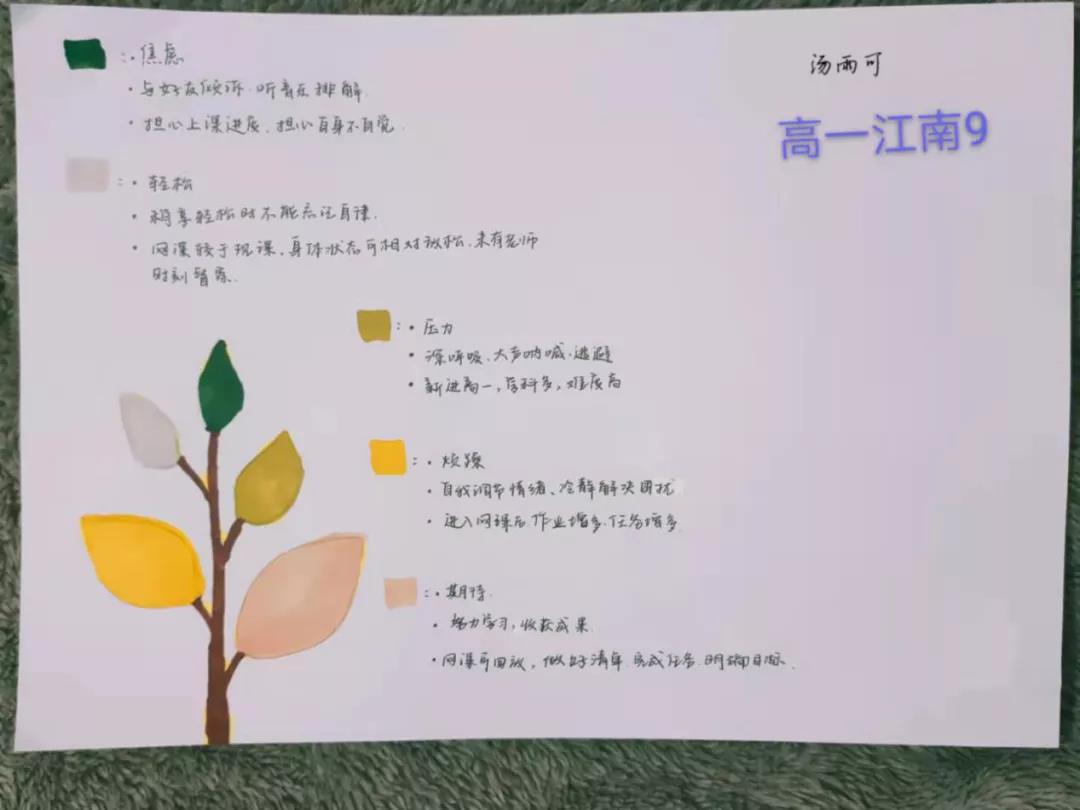 ：·焦虑
·与好友倾诉.听音乐排解.
·担心上课进度、担心自身不自觉.
汤雨可
高一江南9
：·轻松
·稍享轻松时不能忘记自律.
·网课较于现课、身体状态可相对放松.未有老师
时刻督察.
：·压力
·深呼吸、大声呐喊.逃避
·新进高一，学科多，难度高
：·烦躁
·自我调节情绪、冷静解决困扰
·进入网课后.作业增多.任务增多.
：·期待.
·努力学习，收获成果.
·网课可回放，做好清单.完成任务.明确目标.